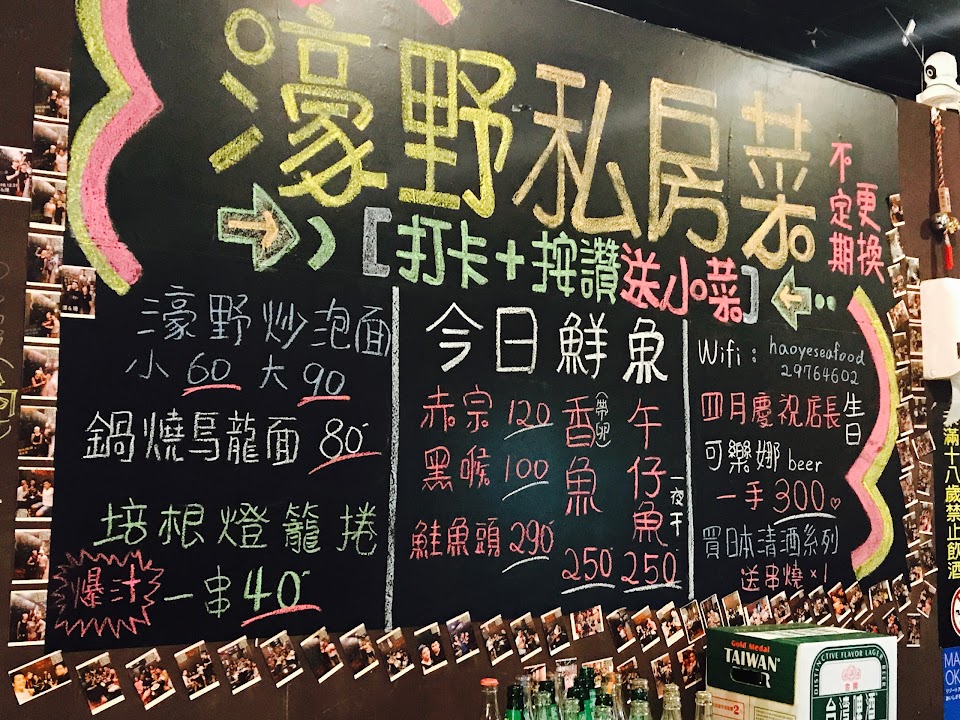 濠野私房菜
不定期
更換
[打卡+按讚送小菜]
濠野炒泡面
小60 大90
鍋燒烏龍面 80
培根燈籠捲
爆汁 一串40
今日鮮魚
赤宗 120
黑喉 100
鮭魚頭 290
香魚(帶卵) 250
午仔魚 一夜干 250
Wifi: haoyeseafood
29764602
四月慶祝店長生日
可樂娜 beer
一手 300♡
買日本清酒系列
送串燒×1
滿十八歲禁止飲酒
Gold Medal
TAIWAN
DISTINCTIVE FLAVOR LAGER BEER
台灣啤酒